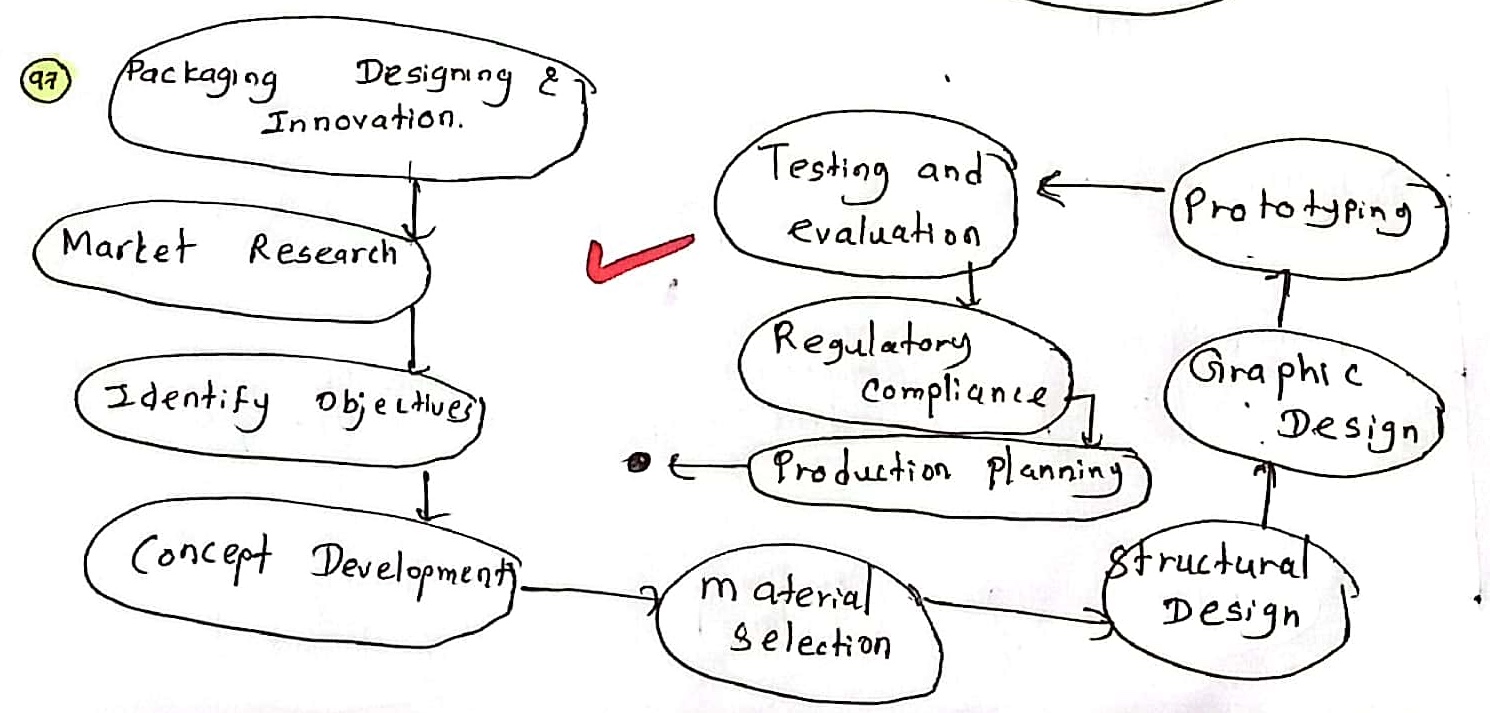 97
Packaging Designing &
Innovation.
Market Research
Identify Objectives
Concept Development
Material
Selection
Structural
Design
Graphic
Design
Prototyping
Testing and
evaluation
Regulatory
compliance
Production planning